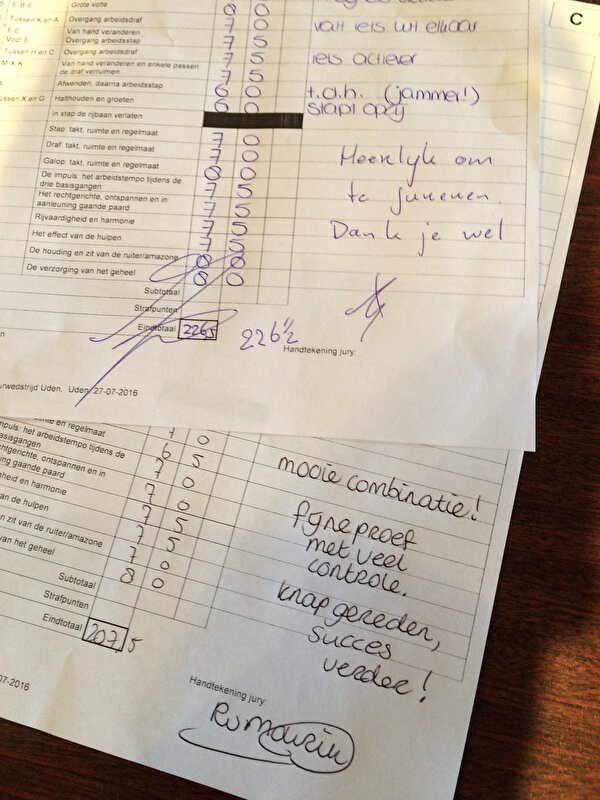 C
E-B-E Grote volte 8 0
Tussen K en A Overgang arbeidsdraf 7 0 valt iets uit elkaar
F-E Van hand veranderen
Voor E Overgang arbeidsstap 7 5
Tussen H en C Overgang arbeidsdraf 7 5 iets actiever
M-X-K Van hand veranderen en enkele passen de draf verruimen 7 5
Afwenden, daarna arbeidsstap 6 0 t.a.h. (jammer!)
Tussen X en G Halthouden en groeten 6 0 stapt opzij
In stap de rijbaan verlaten
Stap: takt, ruimte en regelmaat 7 0
Draf: takt, ruimte en regelmaat 7 0 Heerlijk om
Galop: takt, ruimte en regelmaat 7 0
De impuls: het arbeidstempo tijdens de 8 0
drie basisgangen 7 5 te jureren.
Het rechtgerichte, ontspannen en in
aanleuning gaande paard 7 5
Rijvaardigheid en harmonie 7 5 Dank je wel
Het effect van de hulpen 7 5
De houding en zit van de ruiter/amazone 8 8
De verzorging van het geheel 8 0
Subtotaal
Strafpunten
Eindtotaal 226,5 226½
Handtekening jury
urwedstrijd Uden, Uden 27-07-2016
takt, ruimte en regelmaat 7 0
mpuls: het arbeidstempo tijdens de
basisgangen 6 5
echtgerichte, ontspannen en in
ning gaande paard 7 0 mooie combinatie!
heid en harmonie 7 0
an de hulpen 7 5 fijne proef
n zit van de ruiter/amazone 7 5 met veel
van het geheel 7 0 controle.
Subtotaal 8 0
Strafpunten knap gereden,
Eindtotaal 207,5 succes
verder!
7-07-2016
Handtekening jury